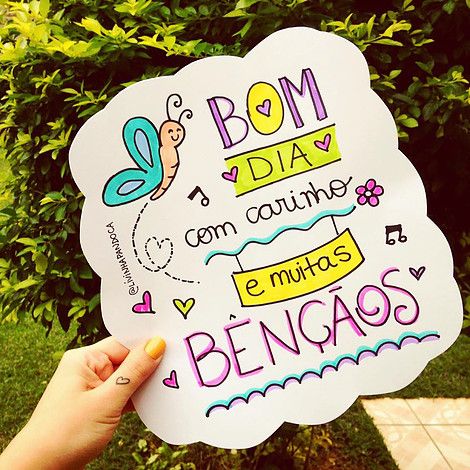 BOM
DIA
com carinho
e muitas
BÊNÇÃOS
@LIVINHAPANDOCA